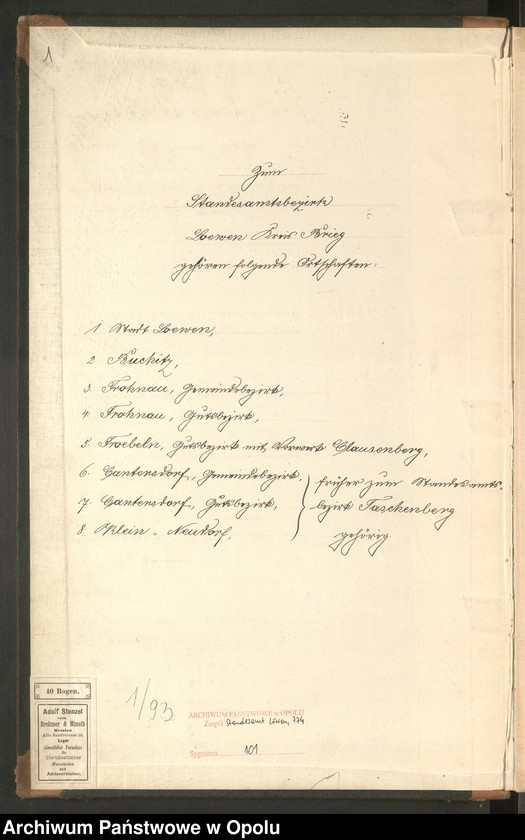 1
Zum
Standesamtsbezirk
Loewen Kreis Brieg
gehören folgende Ortschaften:
1. Stadt Loewen,
2 Buchitz,
3. Frohnau, Gemeindebezirk,
4. Frohnau, Gutsbezirk,
5. Froebeln, Gutsbezirk mit Vorwerk Clausenberg,
6. Cantersdorf, Gemeindebezirk,
7. Cantersdorf, Gutsbezirk,
8 Klein-Neudorf,
früher zum Standesamts-
bezirk Taschenberg
gehörig
1/93
ARCHIWUM PAŃSTWOWE w OPOLU
Zespół Standesamt Löwen, 774
Sygnatura 101
40 Bogen.
Adolf Stenzel
vorm.
Brehmer & Minuth
Breslau
Lager
sämmtlicher Formulare
für
Standesämter
und
Amtsvorsteher.
Archiwum Państwowe w Opolu